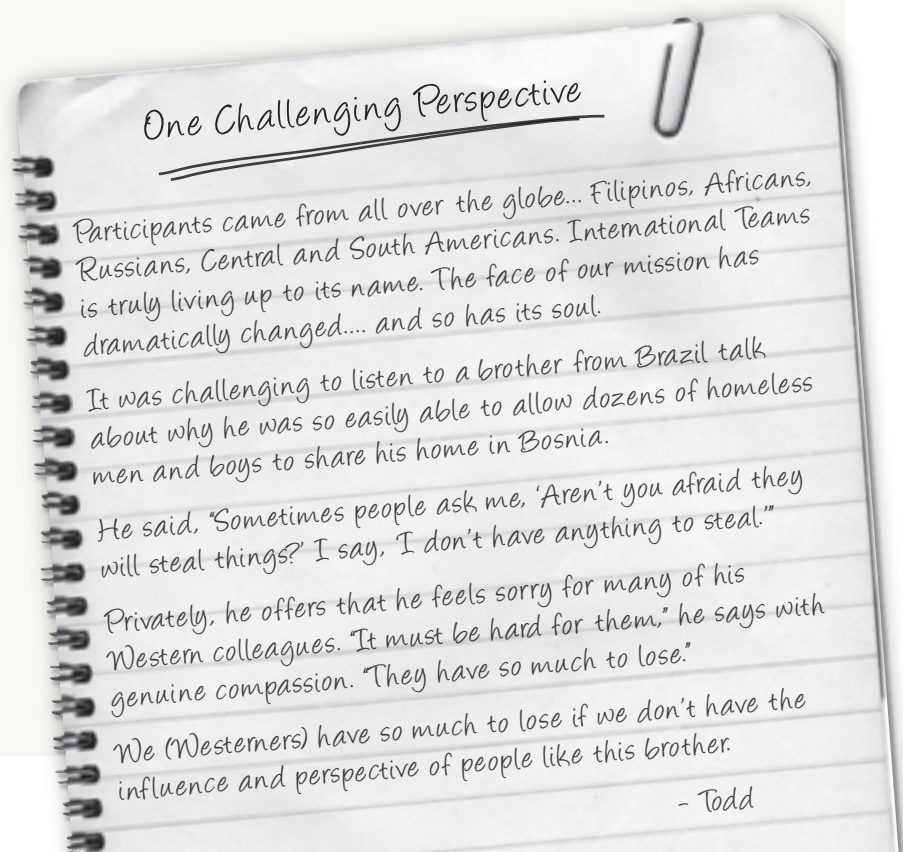 One Challenging Perspective
Participants came from all over the globe... Filipinos, Africans,
Russians, Central and South Americans. International Teams
is truly living up to its name. The face of our mission has
dramatically changed.... and so has its soul.
It was challenging to listen to a brother from Brazil talk
about why he was so easily able to allow dozens of homeless
men and boys to share his home in Bosnia.
He said, “Sometimes people ask me, ‘Aren’t you afraid they
will steal things?’ I say, ‘I don’t have anything to steal.’”
Privately, he offers that he feels sorry for many of his
Western colleagues. “It must be hard for them,” he says with
genuine compassion. “They have so much to lose.”
We (Westerners) have so much to lose if we don’t have the
influence and perspective of people like this brother.
- Todd